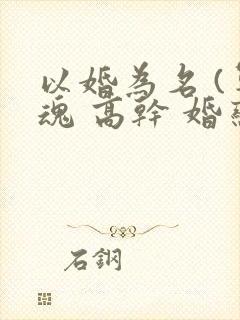 以婚為名(
魂 高幹 婚
石鋼